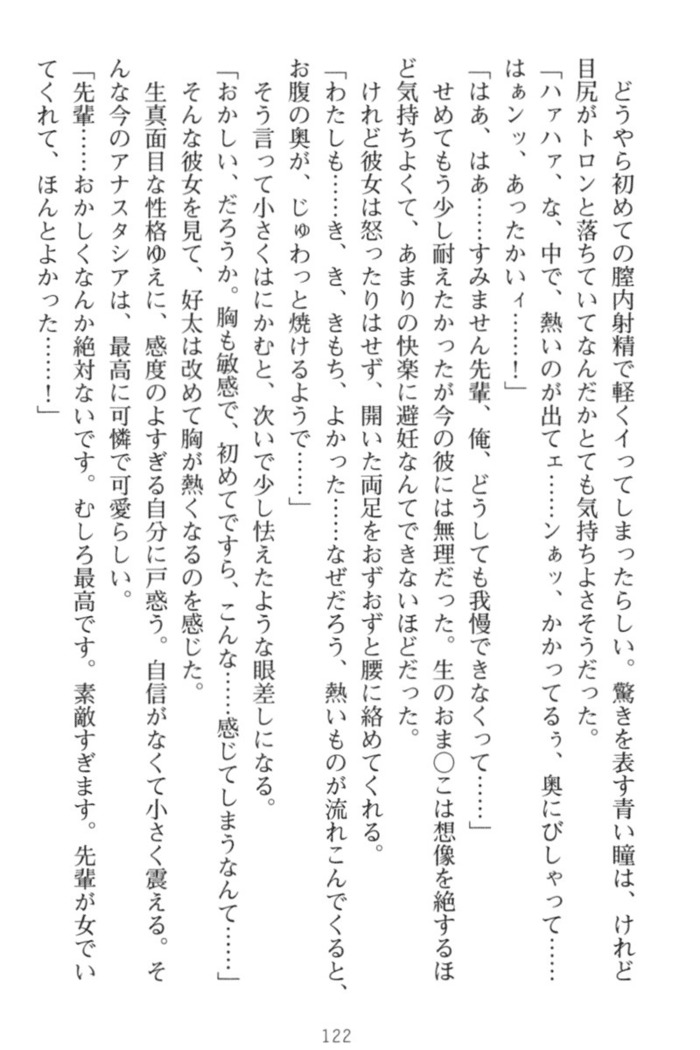 どうやら初めての膣内射精で軽くイってしまったらしい。驚きを表す青い瞳は、けれど
目尻がトロンと落ちていてなんだかとても気持ちよさそうだった。
「ハァハァ、な、中で、熱いのが出てェ……ンぁッ、かかってるぅ、奥にびしゃって……
はぁンッ、あったかいィ……！」
「はあ、はあ……すみません先輩、俺、どうしても我慢できなくって……」
せめてもう少し耐えたかったが今の彼には無理だった。生のおま〇こは想像を絶するほ
ど気持ちよくて、あまりの快楽に避妊なんてできないほどだった。
けれど彼女は怒ったりはせず、開いた両足をおずおずと腰に絡めてくれる。
「わたしも……き、き、きもち、よかった……なぜだろう、熱いものが流れこんでくると、
お腹の奥が、じゅわっと焼けるようで……」
そう言って小さくはにかむと、次いで少し怯えたような眼差しになる。
「おかしい、だろうか。胸も敏感で、初めてですら、こんな……感じてしまうなんて……」
そんな彼女を見て、好太は改めて胸が熱くなるのを感じた。
生真面目な性格ゆえに、感度のよすぎる自分に戸惑う。自信がなくて小さく震える。そ
んな今のアナスタシアは、最高に可憐で可愛らしい。
「先輩……おかしくなんか絶対ないです。むしろ最高です。素敵すぎます。先輩が女でい
てくれて、ほんとよかった……！」
122